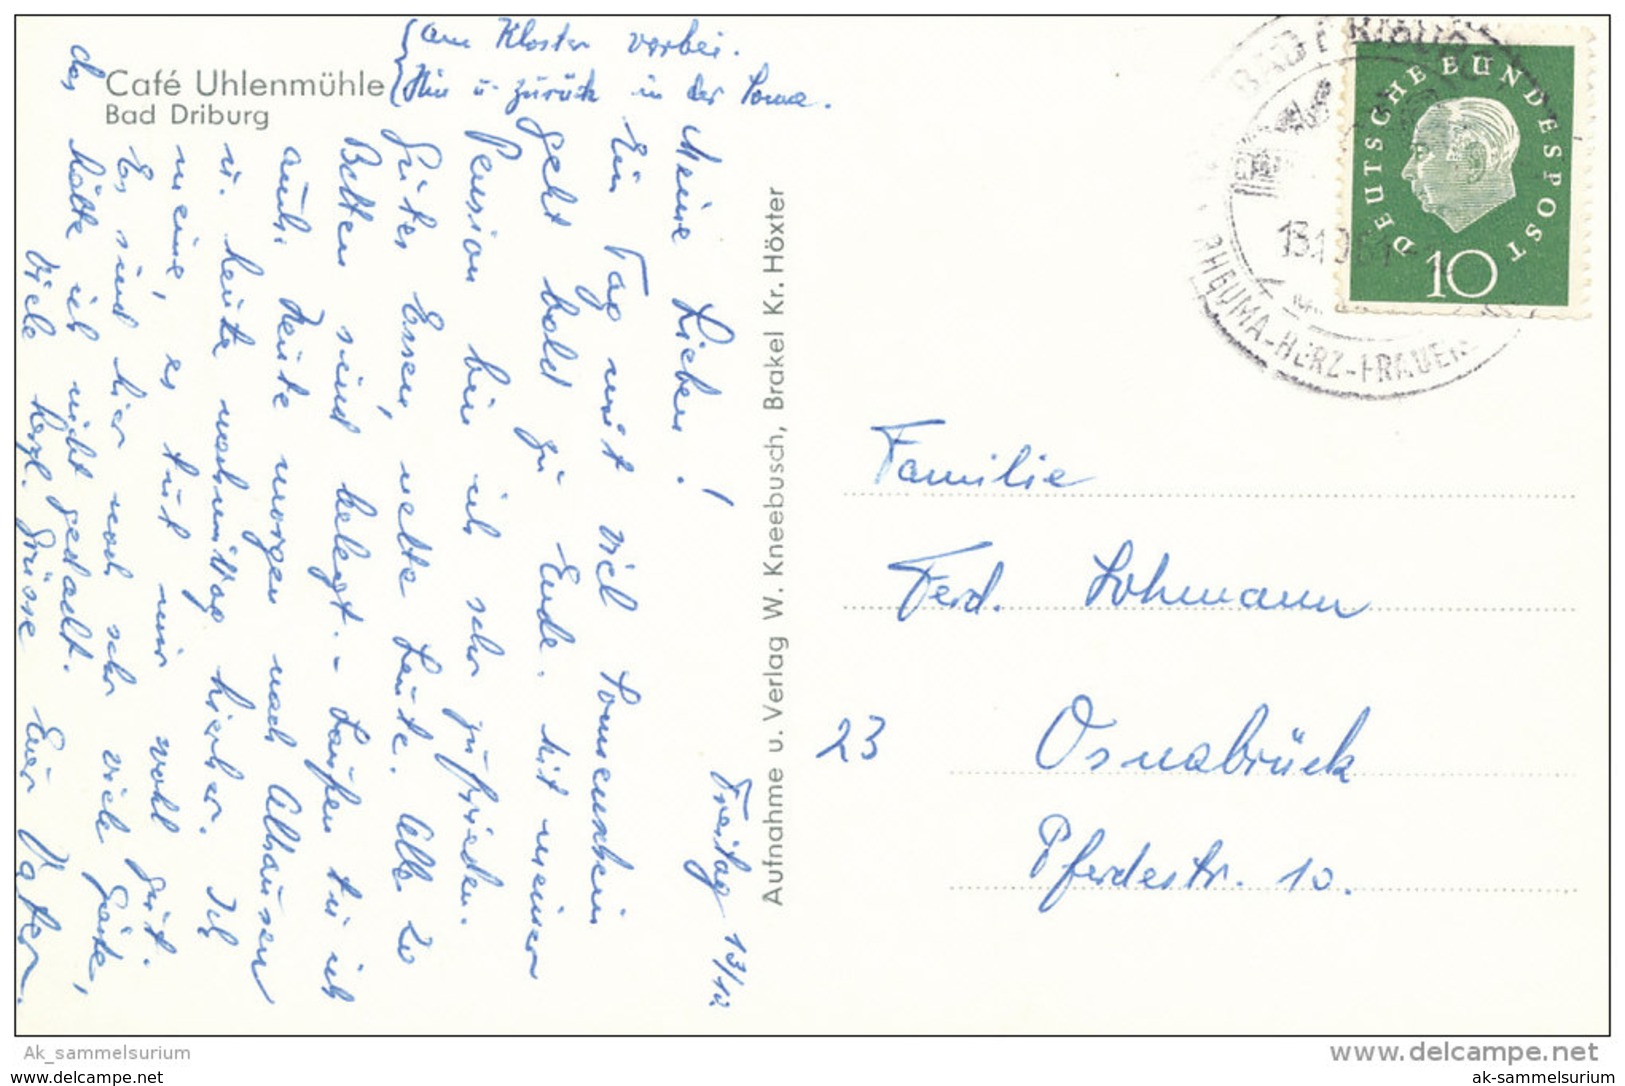 Café Uhlenmühle
Bad Driburg
Freitag 13/10
Meine Lieben!
Ein Tag mit viel Sonnenschein
geht bald zu Ende. Mit meiner
Pension bin ich sehr zufrieden.
Gutes Essen, nette Leute. Alle 20
Betten sind belegt. – Laufen tu ich
auch. Heute morgen nach Alhausen
u. heute nachmittag hierher. Ich
meine, es tut mir wohl gut.
Es sind hier noch sehr viele Gäste,
das hätte ich nicht gedacht.
Viele herzl. Grüsse Euer Vater.
am Kloster vorbei.
Hin u. zurück in der Sonne.
Aufnahme u. Verlag W. Kneebusch, Brakel Kr. Höxter
DEUTSCHE BUNDESPOST
10
BAD DRIBURG
13.10.61
RHEUMA-HERZ-FRAUEN
Familie
Ferd. Lohmann
23 Osnabrück
Pferdestr. 10.
Ak_sammelsurium
www.delcampe.net
www.ak-sammelsurium.de
ak-sammelsurium